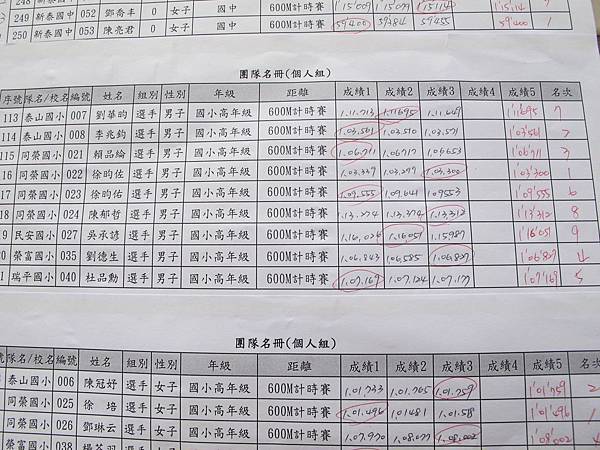 249 新泰國中 052 鄧喬丰 0 女子 國中 600M計時賽 1'15'14
250 新泰國中 053 陳亮君 0 女子 國中 600M計時賽 59'400 59'484 59'455 59'400 1
團隊名冊(個人組)
序號 隊名/校名 編號 姓名 組別 性別 年級 距離 成績1 成績2 成績3 成績4 成績5 名次
113 泰山國小 007 劉華昀 選手 男子 國小高年級 600M計時賽 1.11.713 1.11.695 1.11.669 1'11'695 7
114 泰山國小 008 李兆鈞 選手 男子 國小高年級 600M計時賽 1.03.561 1.03.510 1.03.571 1'03'561 2
115 同榮國小 021 賴品綸 選手 男子 國小高年級 600M計時賽 1.06.711 1.06.717 1.06.653 1'06'711 3
16 同榮國小 022 徐昀佐 選手 男子 國小高年級 600M計時賽 1.03.339 1.03.277 1.03.300 1'03'300 1
17 同榮國小 023 徐昀佑 選手 男子 國小高年級 600M計時賽 1.09.555 1.09.641 1.09553 1'09'555 6
18 同榮國小 024 陳郁哲 選手 男子 國小高年級 600M計時賽 1.13.274 1.13.374 1.13.312 1'13'312 8
9 民安國小 027 吳承諺 選手 男子 國小高年級 600M計時賽 1.16.026 1.16.051 1.15.987 1'16'051 9
0 榮富國小 035 劉德生 選手 男子 國小高年級 600M計時賽 1.06.843 1.06.585 1.06.827 1'06'827 4
1 瑞平國小 040 杜品勳 選手 男子 國小高年級 600M計時賽 1.07.169 1.07.124 1.07.177 1'07'169 5
團隊名冊(個人組)
號 隊名/校名 編號 姓名 組別 性別 年級 距離 成績1 成績2 成績3 成績4 成績5 名次
泰山國小 006 陳冠妤 選手 女子 國小高年級 600M計時賽 1.01.733 1.01.765 1.01.759 1'01'759 2
同榮國小 025 徐 培 選手 女子 國小高年級 600M計時賽 1.01.496 1.01481 1.01.58 1'01'496 1
同榮國小 026 鄧琳云 選手 女子 國小高年級 600M計時賽 1.07.970 1.08.077 1.08.002 1'08'002 4
榮富國小 038 選手 女子 國小高年級 600M計時賽